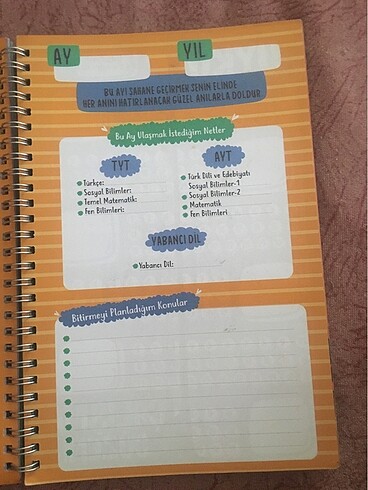 AY
YIL
BU AYI ŞAHANE GEÇİRMEK SENİN ELİNDE
HER ANINI HATIRLANACAK GÜZEL ANILARLA DOLDUR
Bu Ay Ulaşmak İstediğim Netler
TYT
Türkçe:
Sosyal Bilimler:
Temel Matematik:
Fen Bilimleri:
AYT
Türk Dili ve Edebiyatı
Sosyal Bilimler-1
Sosyal Bilimler-2
Matematik
Fen Bilimleri
YABANCI DİL
Yabancı Dil:
Bitirmeyi Planladığım Konular